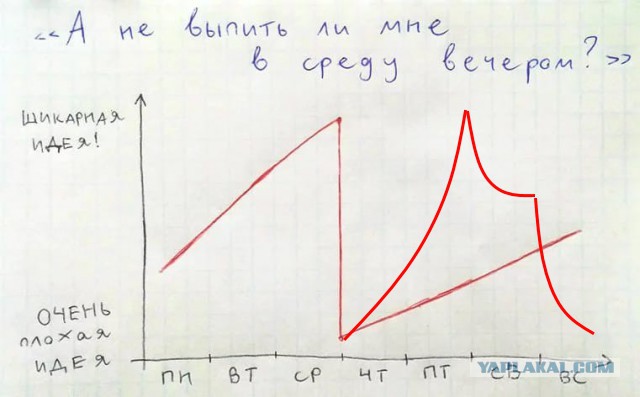 «А не выпить ли мне
в среду вечером?»
ШИКАРНАЯ
ИДЕЯ!
ОЧЕНЬ
плохая
ИДЕЯ
ПН ВТ СР ЧТ ПТ СБ ВС
YAPLAKAL.COM